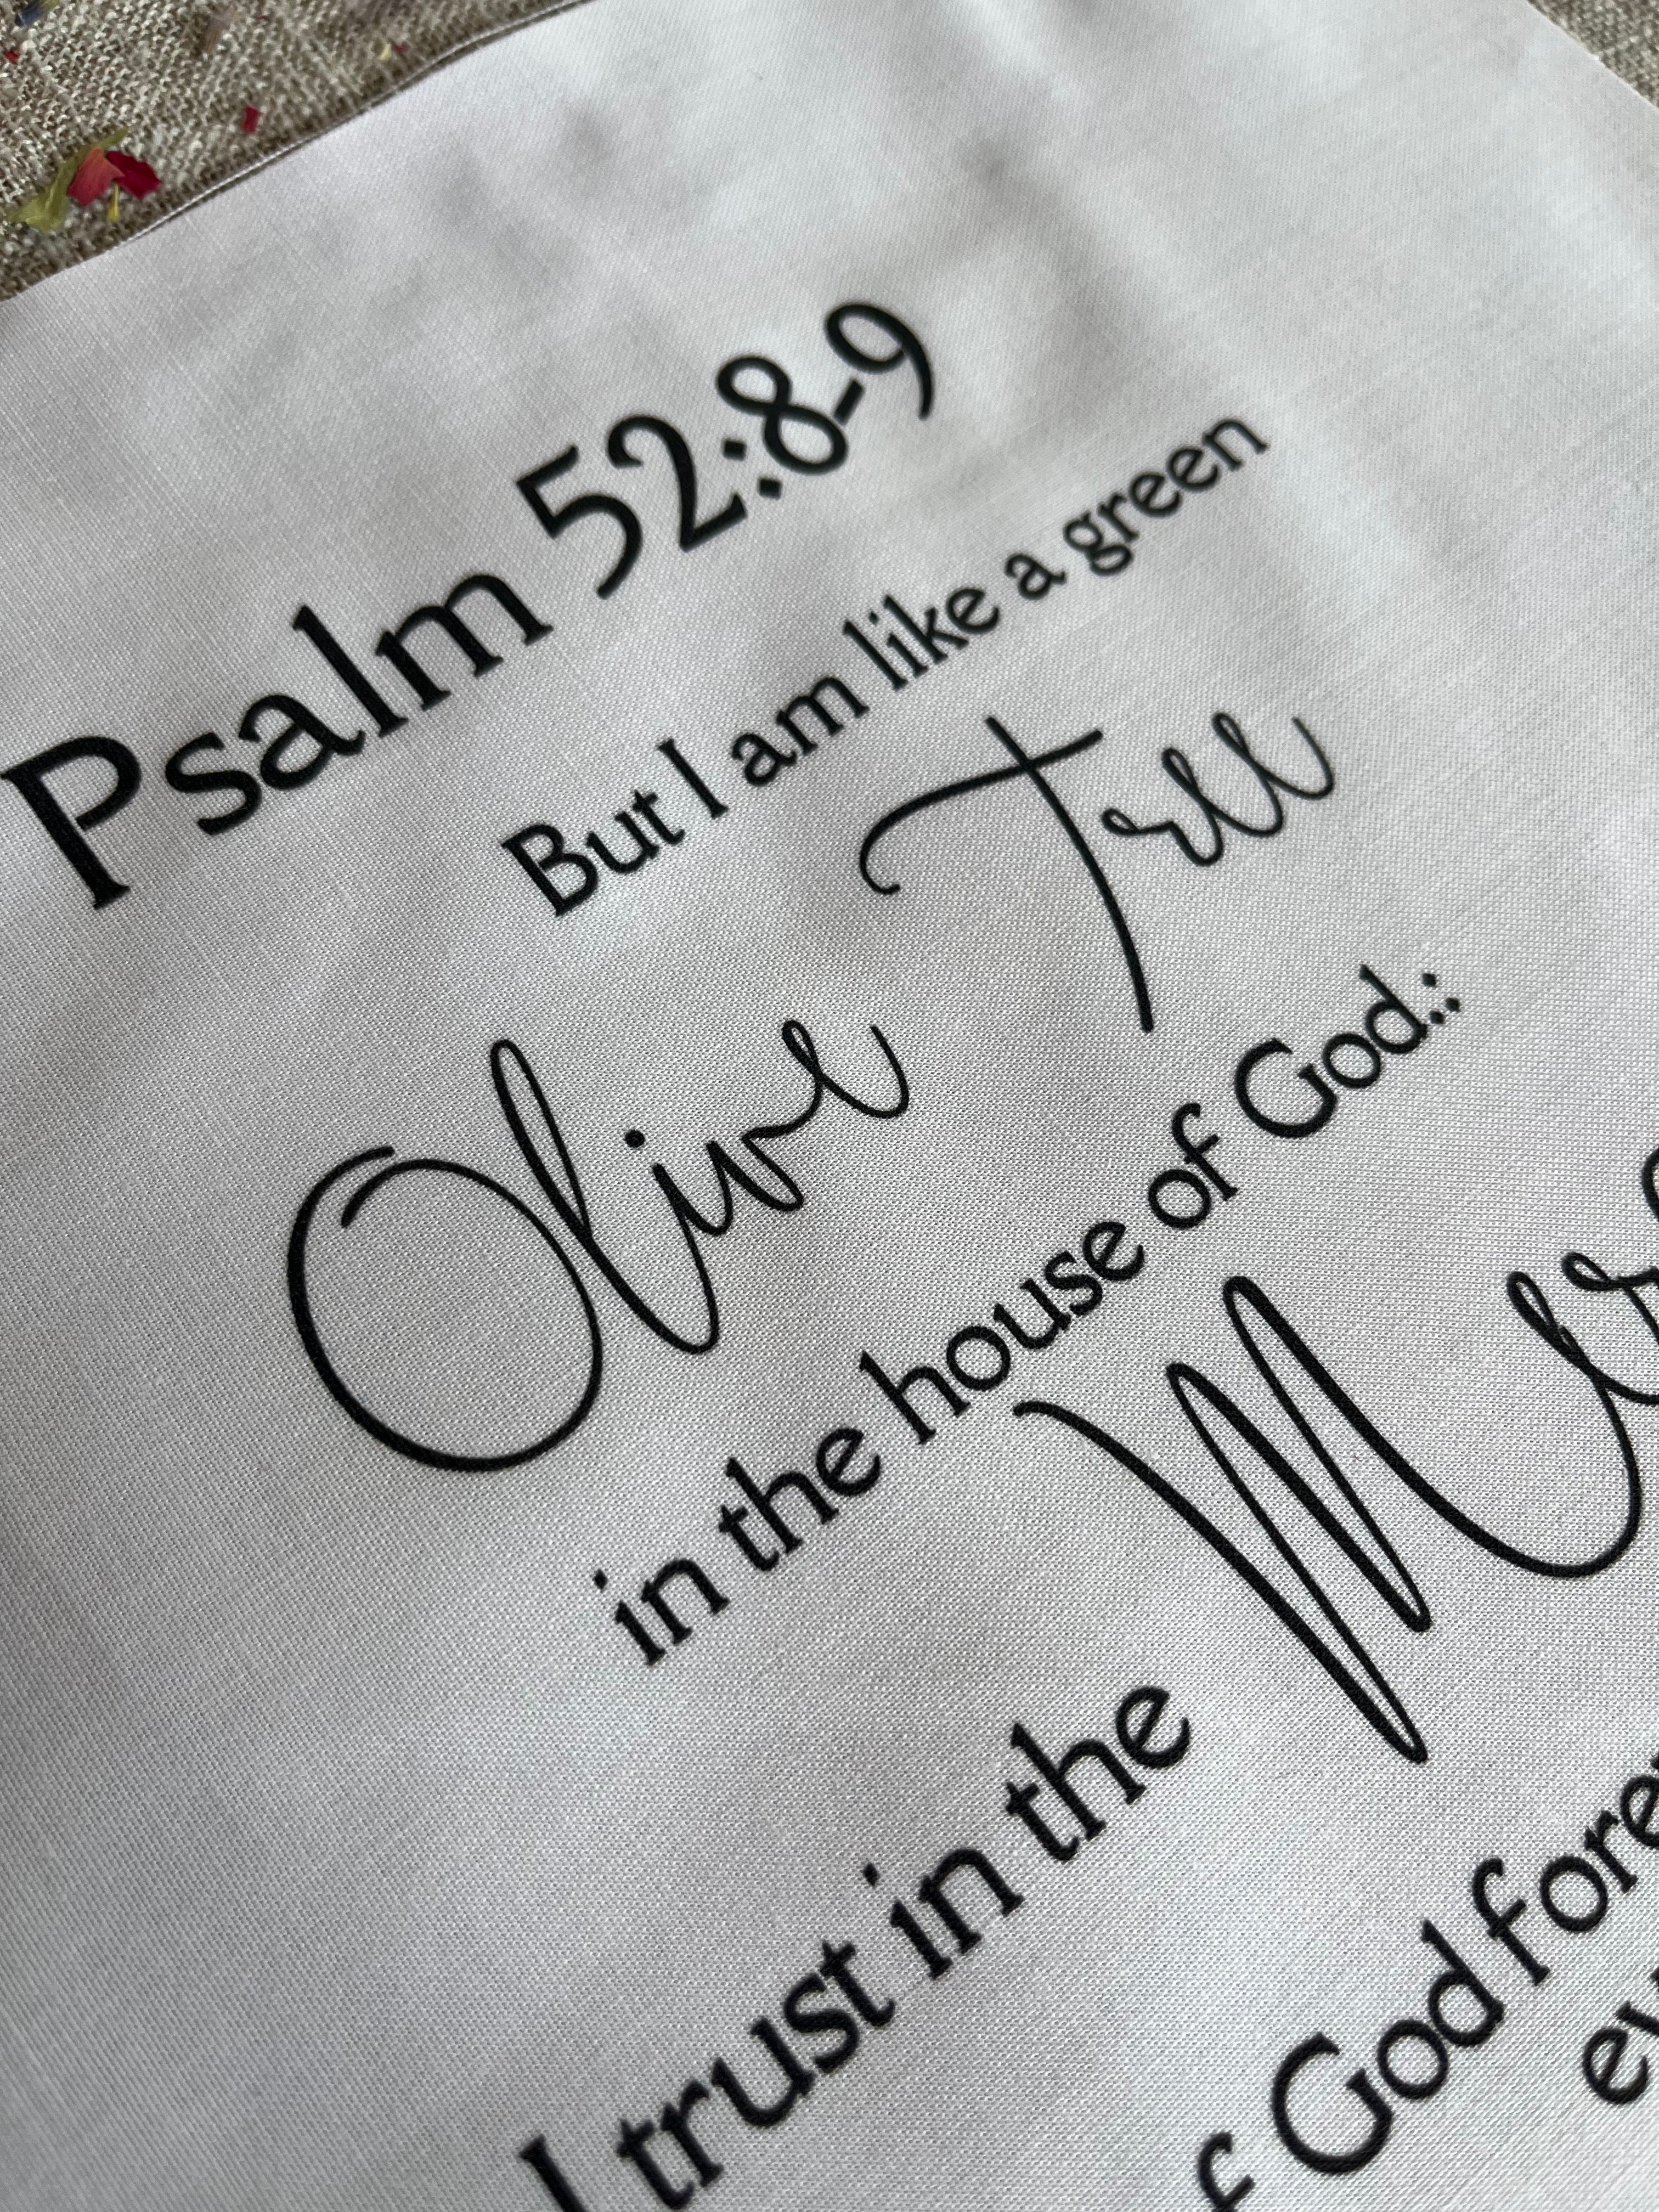 Psalm 52:8-9
But I am like a green
Olive Tree
in the house of God.:
I trust in the
f God